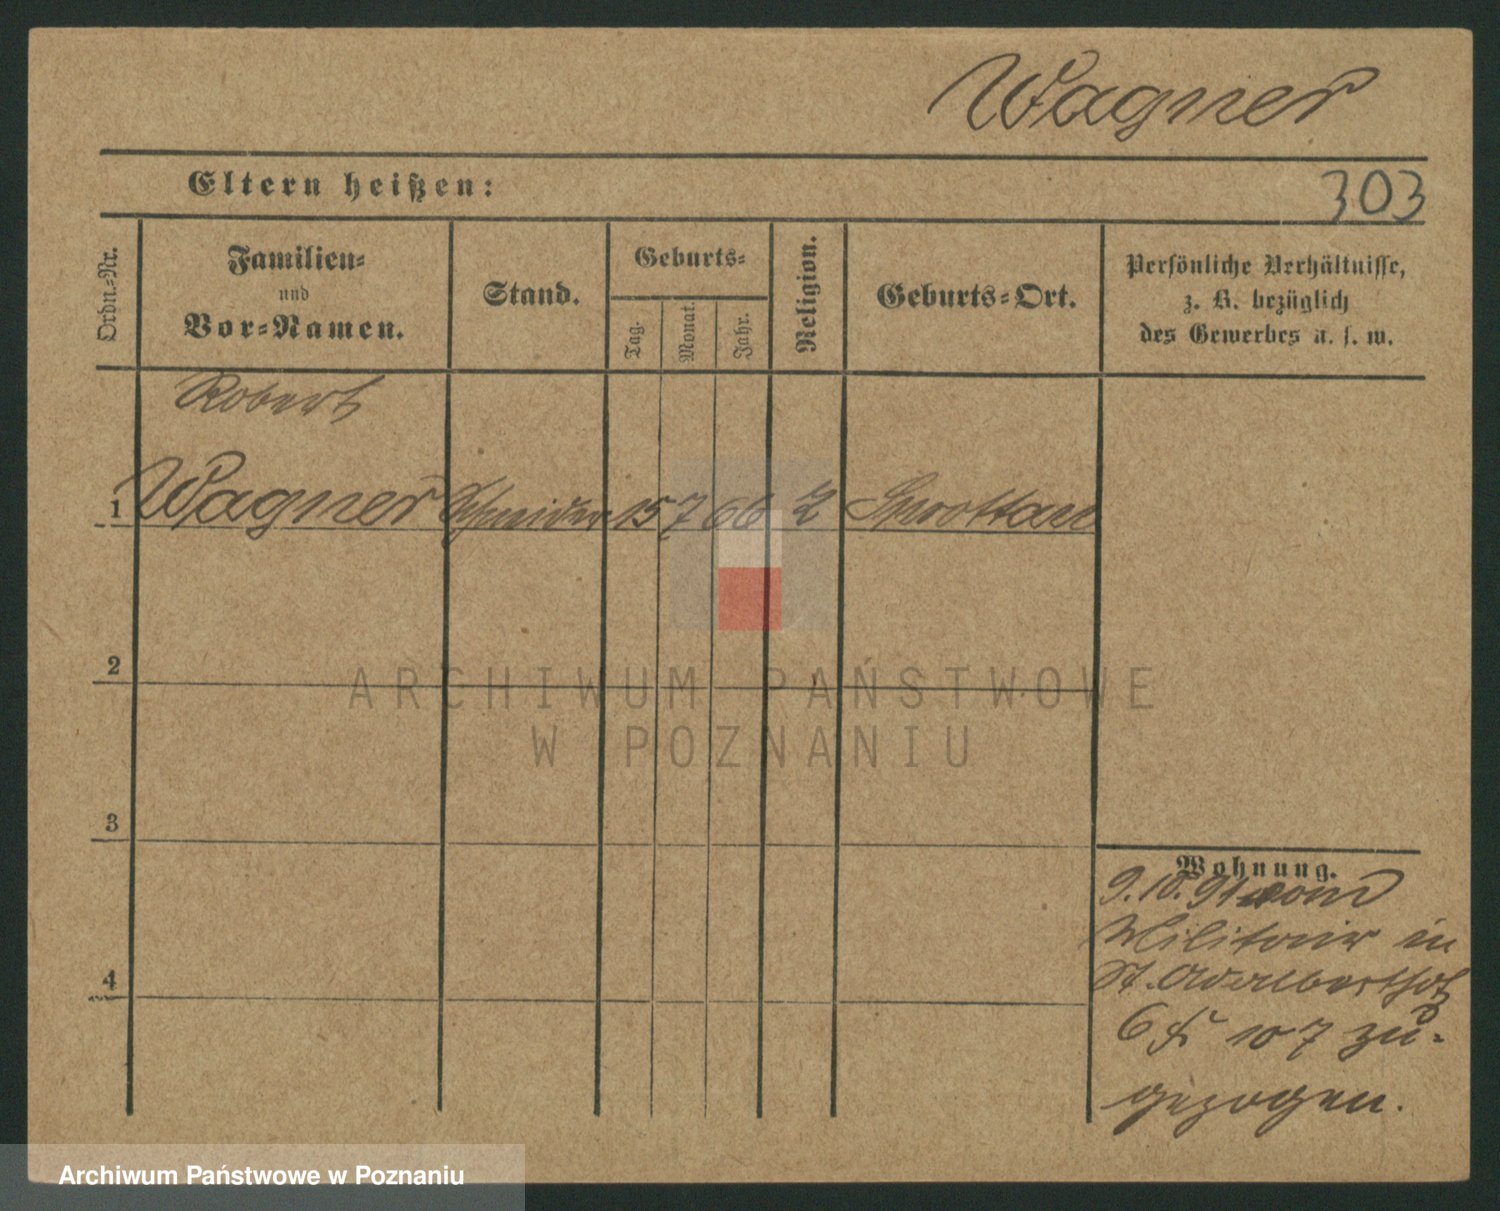 Wagner
Eltern heißen:
303
Ordn.-Nr.
Familien-
und
Vor-Namen.
Stand.
Geburts-
Tag.
Monat.
Jahr.
Religion.
Geburts-Ort.
Persönliche Verhältnisse,
z. B. bezüglich
des Gewerbes u. s. w.
Robert
1 Wagner Schneider 15 7 66 Sprottau
2
3
4
Wohnung.
9.10.91 vom
Militair in
St. Adalberthof
6 107 zu-
gezogen.
ARCHIWUM PAŃSTWOWE
W POZNANIU
Archiwum Państwowe w Poznaniu